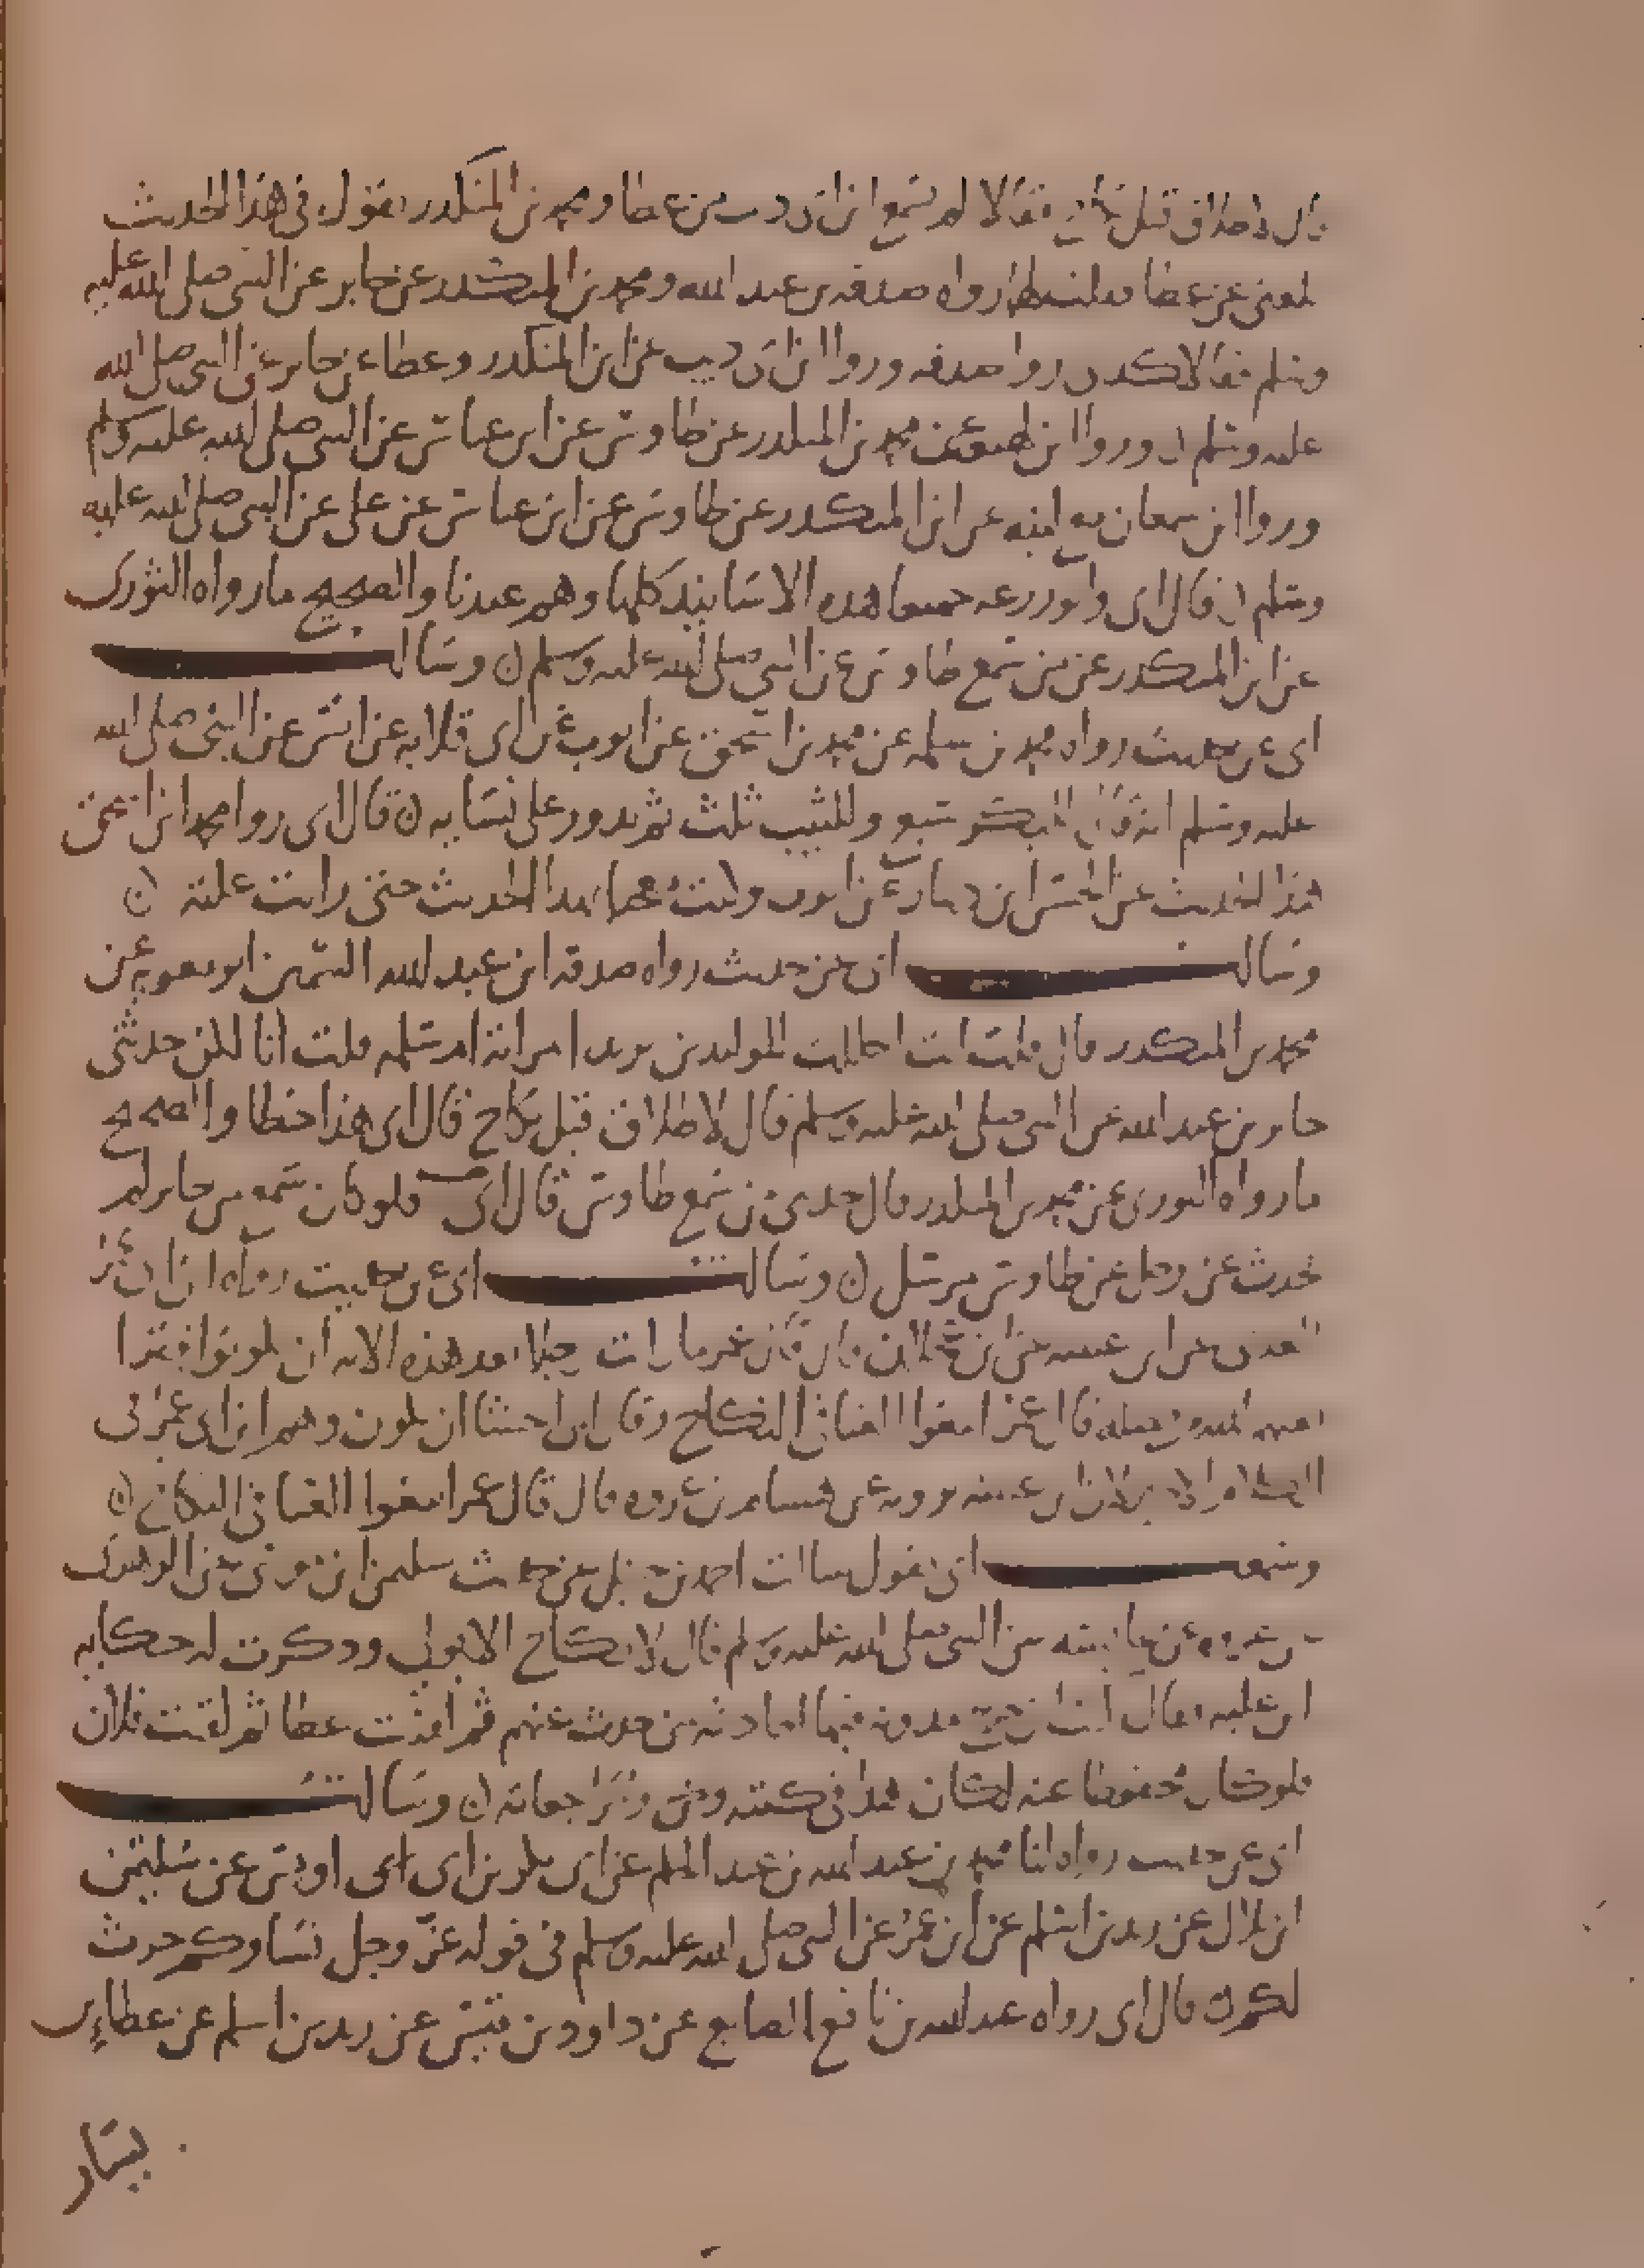 قال لا طلاق قبل نكاح فقالا لم يسمع ابن ابي ديب من عطا ومحمد بن المنكدر يقول في هذا الحديث
بلغني عن عطا رواه صدقه بن عبد الله ومحمد بن المنكدر عن جابر عن النبي صلى الله عليه
وسلم فقالا رواه صدقه ورواه ابن ابي ديب عن ابن المنكدر وعطاء عن جابر عن النبي صلى الله
عليه وسلم ن وروا ابن لهيعه عن محمد بن المنكدر عن طاوس عن ابن عباس عن النبي صلى الله عليه وسلم
وروا ابن سمعان عن ابن المنكدر عن طاوس عن ابن عباس عن علي عن النبي صلى الله عليه
وسلم ن قال ابي وابو زرعه جميعا هذه الاسانيد كلها وهم عندنا والصحيح ما رواه الثوري
عن ابن المنكدر عن من سمع طاوس عن النبي صلى الله عليه وسلم ن وسالت
ابي عن حديث رواه محمد بن سلمه عن محمد بن اسحق عن ايوب عن ابي قلابه عن انس عن النبي صلى الله
عليه وسلم انه قال للبكر سبع وللثيب ثلث ثم يدور على نسايه ن قال ابي روا محمد ابن اسحق
هذا الحديث عن الحسن ابن دينار عن ايوب وكنت معجبا بهذا الحديث حتى رايت علته ن
وسالت ابي عن حديث رواه صدقه ابن عبد الله السمين ابو معويه عن
محمد بن المنكدر قال قلت انت احللت للوليد بن يزيد امراته ام سلمه قلت انا لكن حدثني
جابر بن عبد الله عن النبي صلى الله عليه وسلم قال لا طلاق قبل نكاح قال ابي هذا خطا والصحيح
ما رواه الثوري عن محمد بن المنكدر قال حدثني من سمع طاوس قال ابي فلو كان سمع من جابر لم
يحدث عن رجل عن طاوس مرسل ن وسالت ابي عن حديث رواه ابن ابي عمر
العدني عن ابن عيينه عن ابن عجلان قال قال عمر ما رايت رجلا بعد هذه الايه ان يكونوا فقرا
يغنهم الله من فضله قال عمر ابتغوا الغنا في النكاح وقال ابي احسبنا ان يكون وهم ابن ابي عمر في
ابن عيينه يرويه عن هشام بن عروه قال قال عمر ابتغوا الغنا في النكاح ن
وسمعت ابي يقول سالت احمد بن حنبل عن حديث سليمن ابن موسى عن الزهري
عن عروه عن عايشه عن النبي صلى الله عليه وسلم قال لا نكاح الا بولي وذكرت له حكايه
ابن عليه فقال كتب ابن جريج مدونه فيها احاديثه من حدث عنهم ثم لقيت عطا ثم لقيت فلان
فلو كان محفوظا عنه لكان هذا في كتبه ومراجعاته ن وسالت
ابي عن حديث رواه لنا محمد بن عبد الله بن عبد الحكم عن ابي بكر بن ابي اويس عن سليمن
ابن بلال عن زيد بن اسلم عن ابن عمر عن النبي صلى الله عليه وسلم في قوله عز وجل نساوكم حرث
لكم ن قال ابي رواه عبد الله بن نافع الصايغ عن داود بن قيس عن زيد بن اسلم عن عطاء بن
يسار